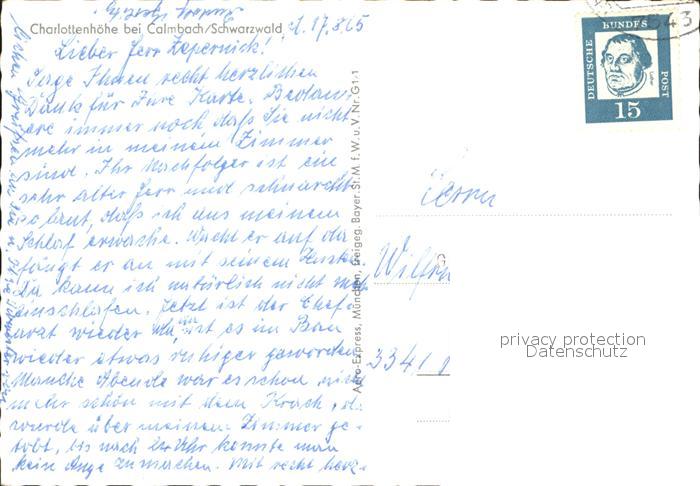 Charlottenhöhe bei Calmbach/Schwarzwald d. 17.8.65
Lieber Herr Depernick!
Sage Ihnen recht herzlichen
Dank für Ihre Karte. Bedau-
ere immer noch, daß Sie nicht
mehr in meinem Zimmer
sind. Ihr Nachfolger ist ein
sehr alter Herr und schnarcht
so laut, daß ich aus meinem
Schlaf erwache. Wacht er auf da
fängt er an mit seinem Husten.
Da kann ich natürlich nicht mehr
einschlafen. Jetzt ist der Chef-
arzt wieder da, ist es im Bau
wieder etwas ruhiger geworden.
Manche Abende war es schon nicht
mehr schön mit dem Krach, da
wurde über meinem Zimmer ge-
tobt, bis nach Uhr konnte man
kein Auge zumachen. Mit recht herz-
lichen Grüßen
Aero-Express, München, Freigeg. Bayer. St. M. f. W. u. V. Nr. G1-1
DEUTSCHE
BUNDES
POST
Luther
15
7543
Herrn
Wilfri
334/1
privacy protection
Datenschutz